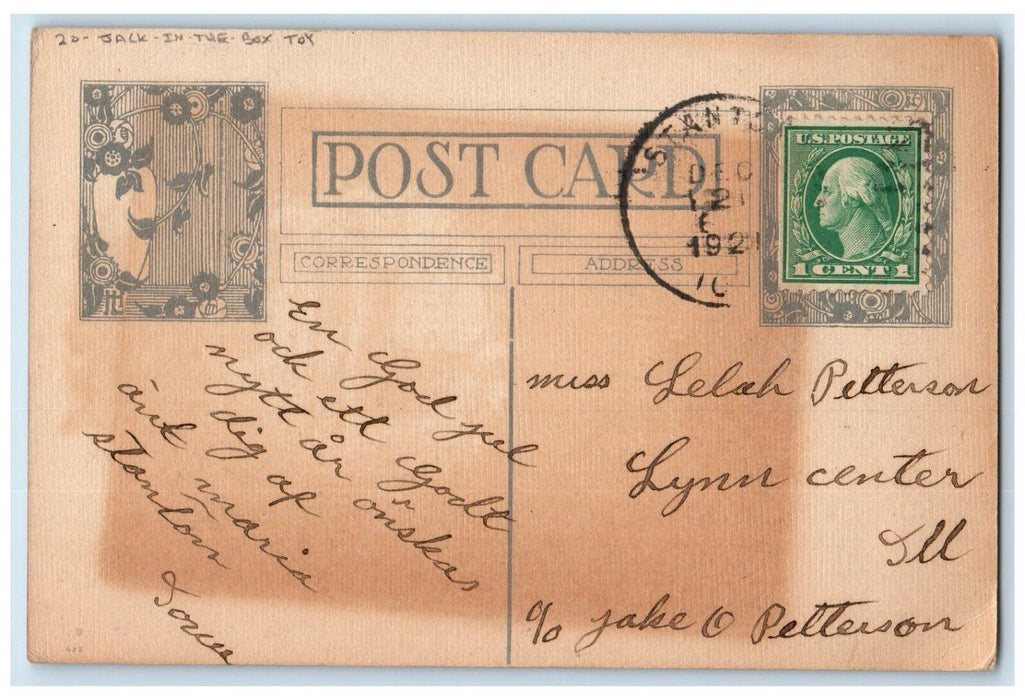 20- JACK-IN-THE-BOX TOY
POST CARD
CORRESPONDENCE
ADDRESS
STANTO
DEC
21
6
1921
U.S. POSTAGE
1 CENT 1
En God jul
och ett Godt
nytt år önskas
dig af
ant maria
stanton
Iowa
miss Lelah Petterson
Lynn center
Ill
c/o jake O Petterson